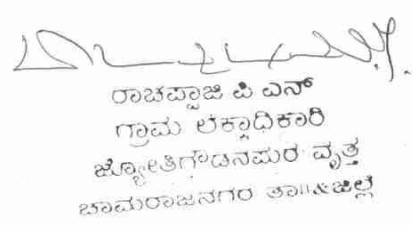 ರಾಚಪ್ಪಾಜಿ ಪಿ ಎನ್
ಗ್ರಾಮ ಲೆಕ್ಕಾಧಿಕಾರಿ
ಜ್ಯೋತಿಗೌಡನಪುರ ವೃತ್ತ
ಚಾಮರಾಜನಗರ ತಾ||&ಜಿಲ್ಲೆ